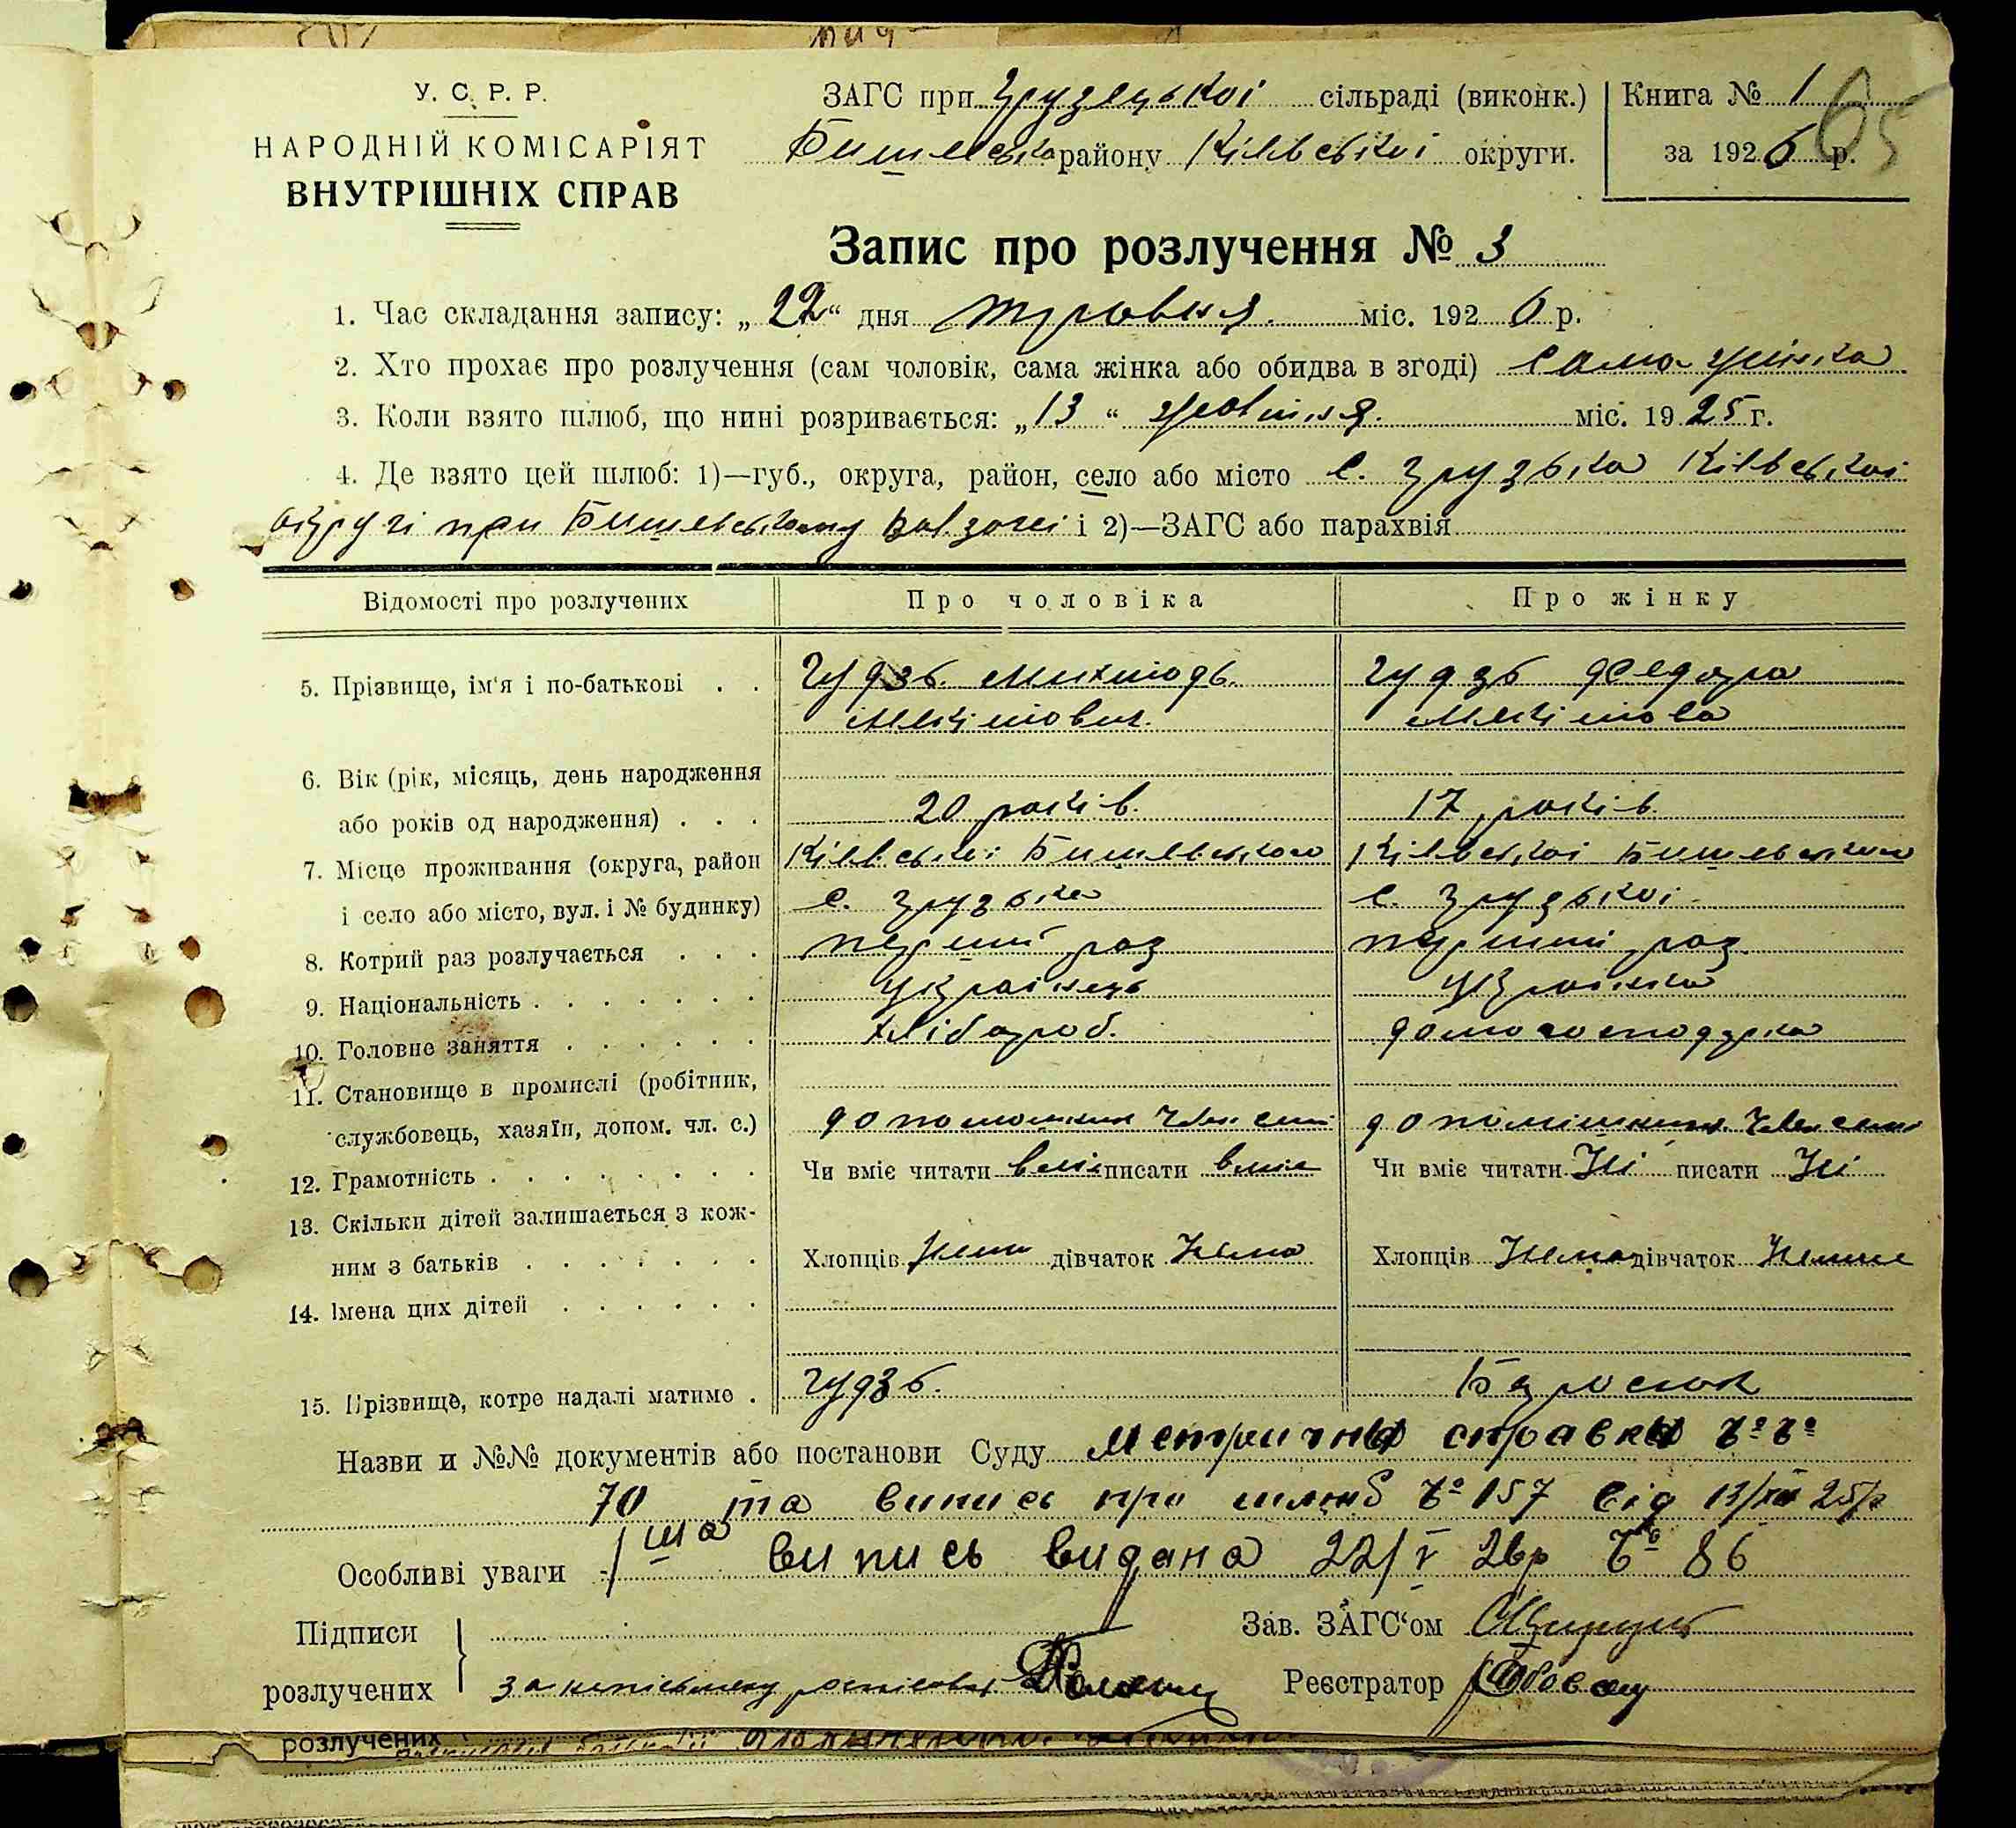 У. С. Р. Р.
НАРОДНІЙ КОМІСАРІЯТ
ВНУТРІШНІХ СПРАВ
ЗАГС при Грузецької сільраді (виконк.)
району Київської округи.
Книга № 1
за 1926 р.
65
Запис про розлучення № 3
1. Час складання запису: „22“ дня травня міс. 1926 р.
2. Хто прохає про розлучення (сам чоловік, сама жінка або обидва в згоді) сама жінка
3. Коли взято шлюб, що нині розривається: „13“ жовтня міс. 1925 г.
4. Де взято цей шлюб: 1)—губ., округа, район, село або місто с. Грузька Київської
округи при і 2)—ЗАГС або парахвія
Відомості про розлучених Про чоловіка Про жінку
5. Прізвище, ім'я і по-батькові . . Гудзь Гудзь Федора
6. Вік (рік, місяць, день народження
або років од народження) . . . 20 років. 17 років.
7. Місце проживання (округа, район Київської Київської
і село або місто, вул. і № будинку) с. Грузька с. Грузької
8. Котрий раз розлучається . . . перший раз перший раз
9. Національність . . . . . . . українець українка
10. Головне заняття . . . . . . хлібороб. домогосподарка
11. Становище в промислі (робітник,
службовець, хазяїн, допом. чл. с.) член сімї член сімї
12. Грамотність . . . . . . . Чи вміє читати вміє писати вміє Чи вміє читати Ні писати Ні
13. Скільки дітей залишається з кож-
ним з батьків . . . . . . . Хлопців нема дівчаток Нема Хлопців Нема дівчаток Нема
14. Імена цих дітей . . . . . .
15. Прізвище, котре надалі матиме . Гудзь.
Назви и №№ документів або постанови Суду Метричня справка №№
70 та випись про шлюб № 157 від 25/р
Особливі уваги 1ша випись видана 22/V 26р № 86
Підписи
розлучених
Зав. ЗАГС‘ом
за неписьменну
Реєстратор
розлучених